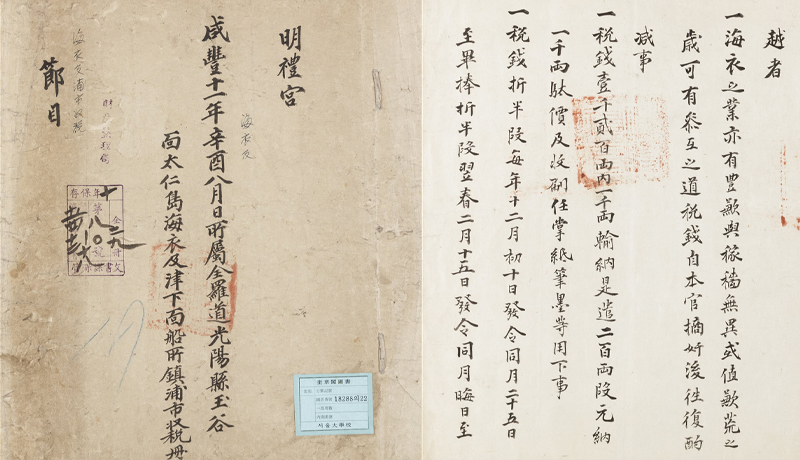 海衣及
明禮宮
咸豊十一年辛酉八月日所屬全羅道光陽縣玉谷
面太仁島海衣及津下面船所鎮浦市収税冊
節目
奎章閣圖書
18288의22
서울大學校
越者
一海衣之業亦有豊歉與稼穡無異或値歉荒之
歲可有叅互之道税錢自本官摘奸後往復酌
減事
一税錢壹千貳百兩內一千兩輸納是遣二百兩段元納
一千兩䭾價及收刷任掌紙筆墨等用下事
一税錢折半段每年十二月初十日發令同月二十五日
至畢捧折半段翌春二月十五日發令同月晦日至